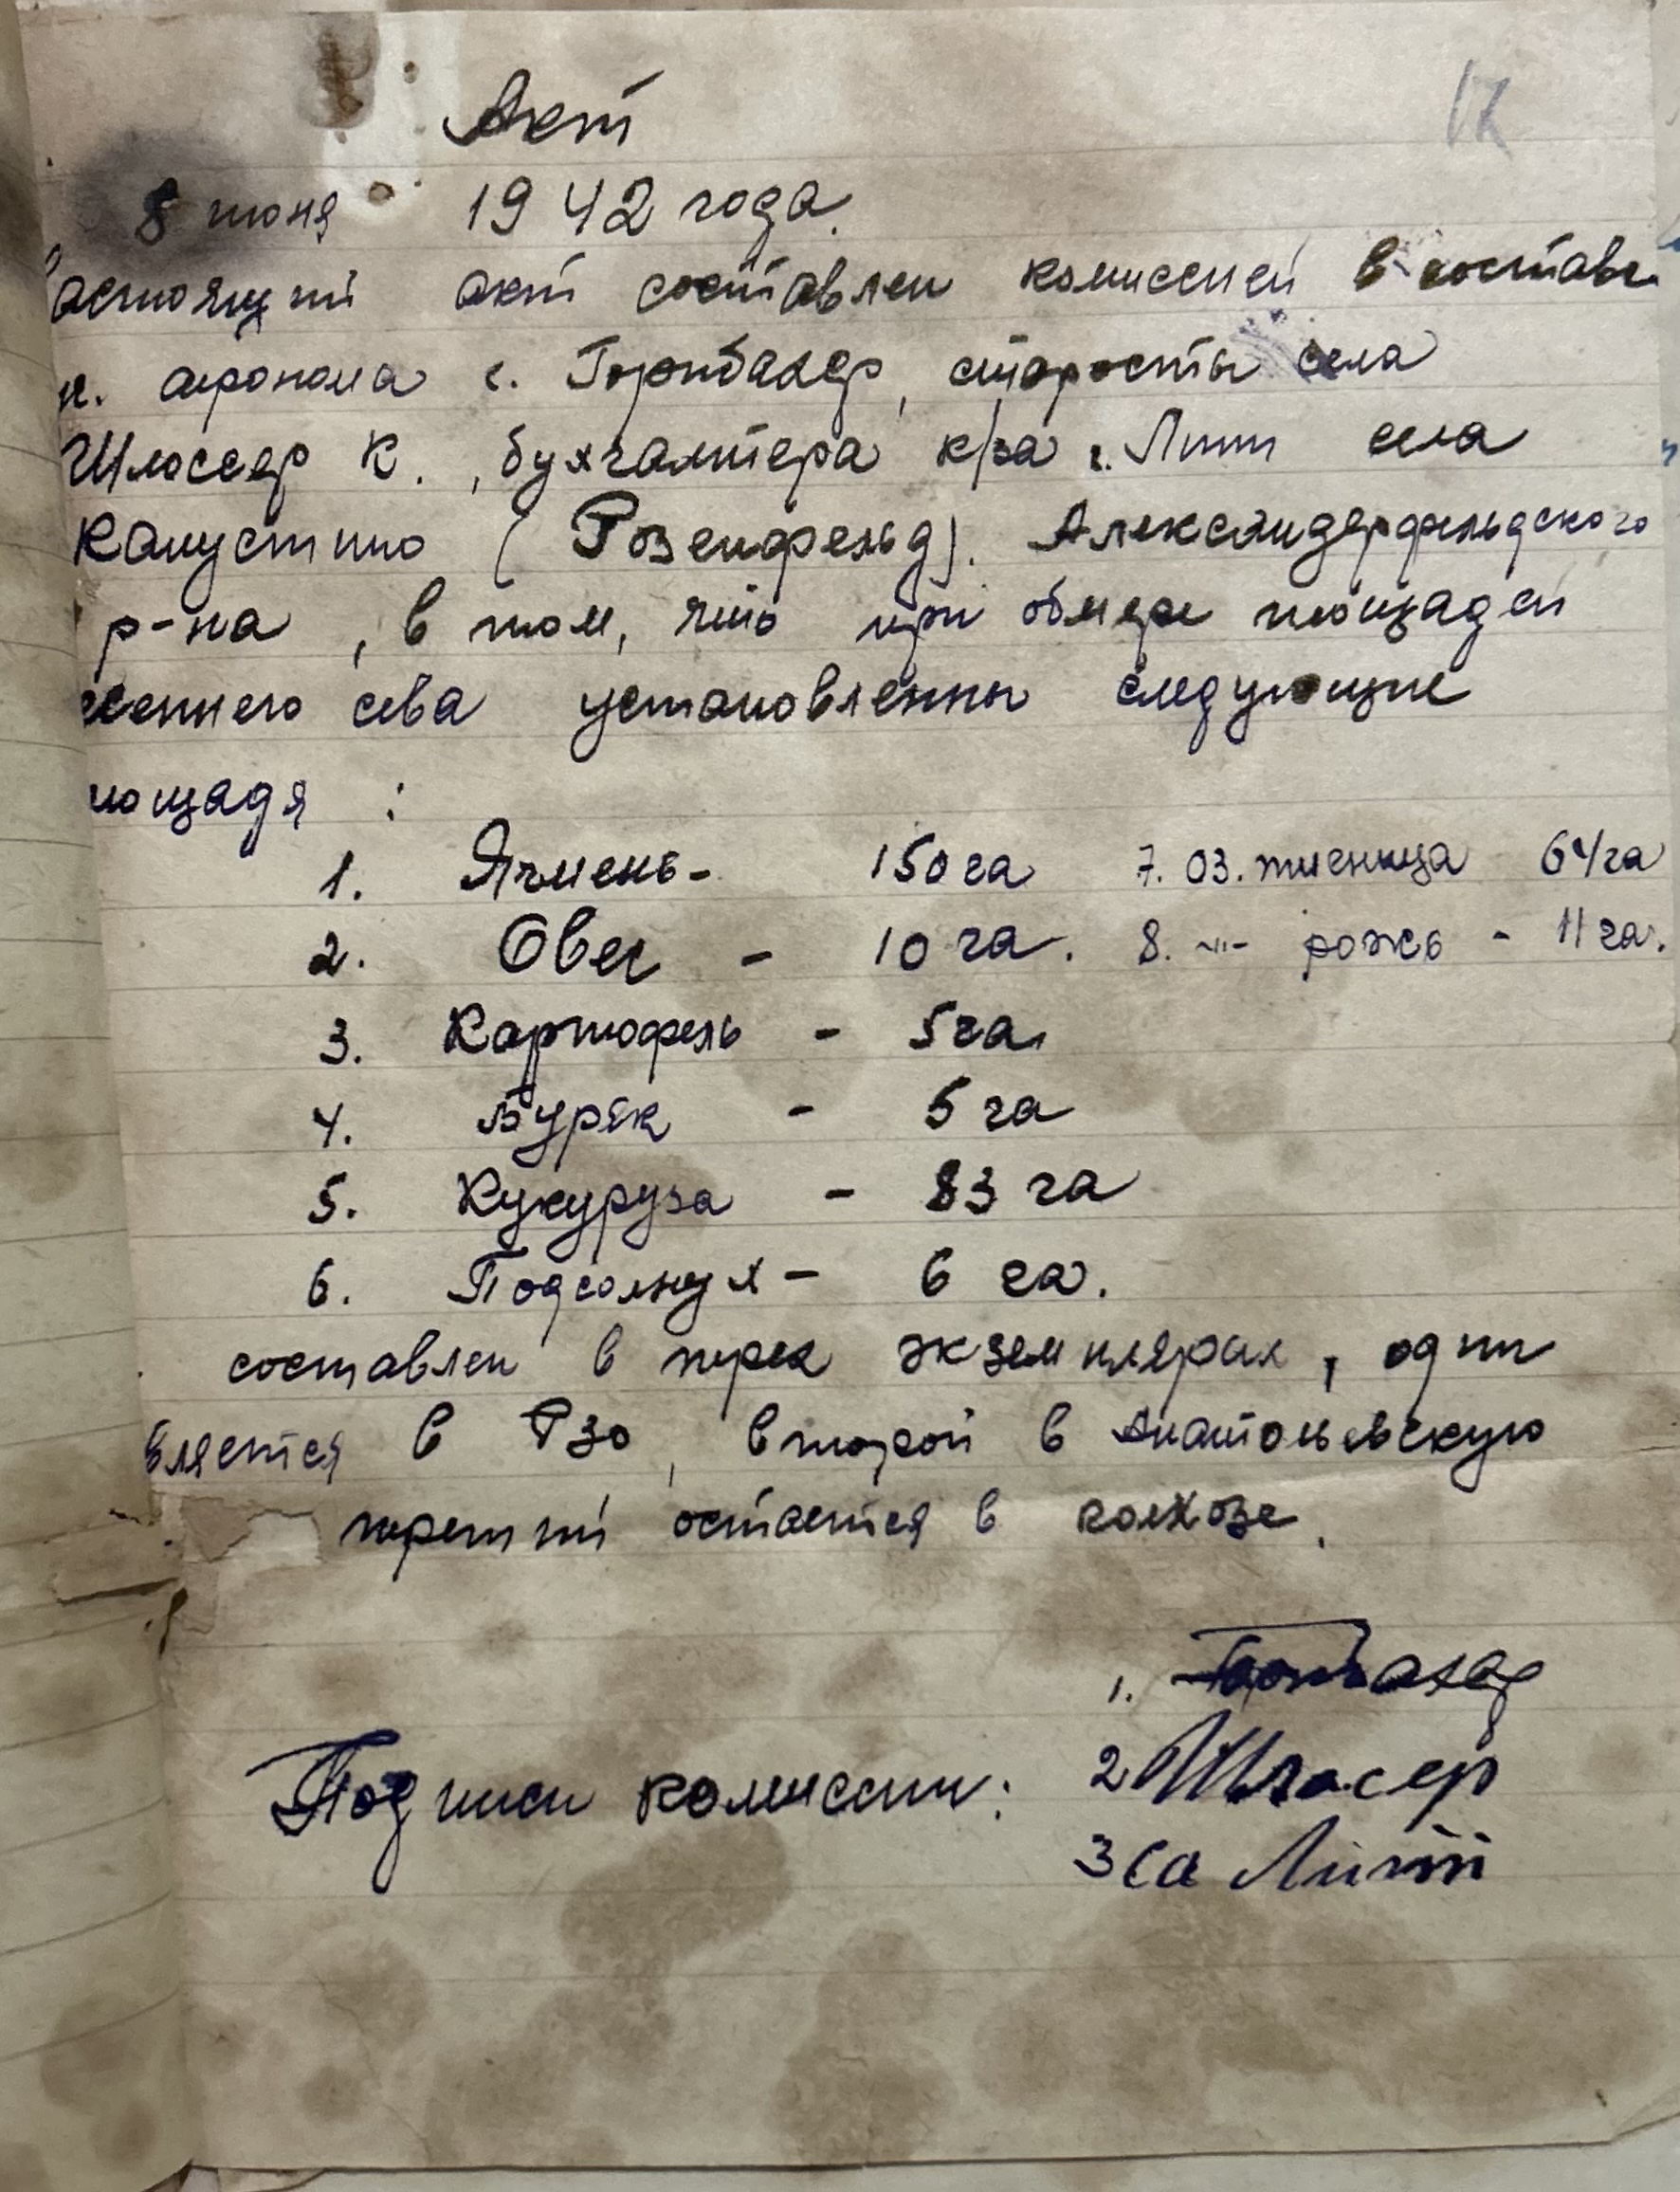 17
Акт
8 июня 1942 года.
астоящий акт составлен комиссией в составе
агронома г. Гортбахер, старосты села
Шлоссер К., бухгалтера к/за г. Литт села
Капустино (Розенфельд). Александерфельдского
р-на, в том, что при обмере площадей
сеннего сева установленны следующие
лощадя:
1. Ячмень - 150 га 7. 03. пшеница 64 га
2. Овес - 10 га. 8. -"- рожь - 11 га.
3. Картофель - 5 га
4. Буряк - 5 га
5. Кукуруза - 83 га
6. Подсолнух - 6 га.
составлен в трех экземплярах, один
вляется в РЗО, второй в Анатольевскую
третий остается в колхозе.
1. Гортбахер
Подписи комиссии: 2 Шлосер
3 Литт